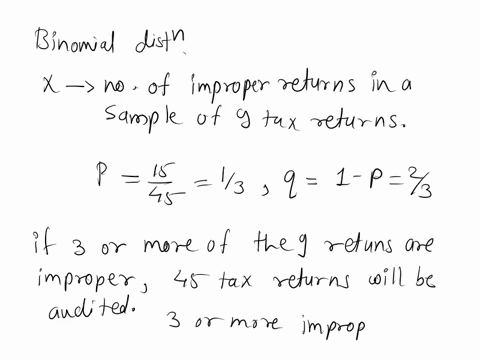 Binomial distⁿ.
X → no. of improper returns in a
sample of 9 tax returns.
P = 15/45 = 1/3 , q = 1 - P = 2/3
if 3 or more of the 9 retuns are
improper, 45 tax returns will be
audited.
3 or more improp